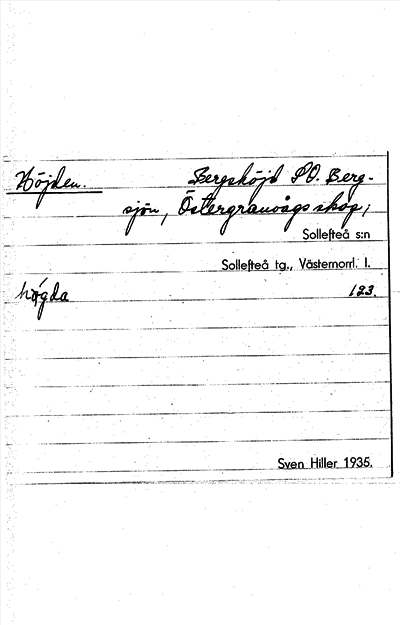 Höjden. Bergshöjd SO. Berg-
sjön, Östergranvågs skog;
Sollefteå s:n
Sollefteå tg., Västernorrl. l.
högda 123.
Sven Hiller 1935.